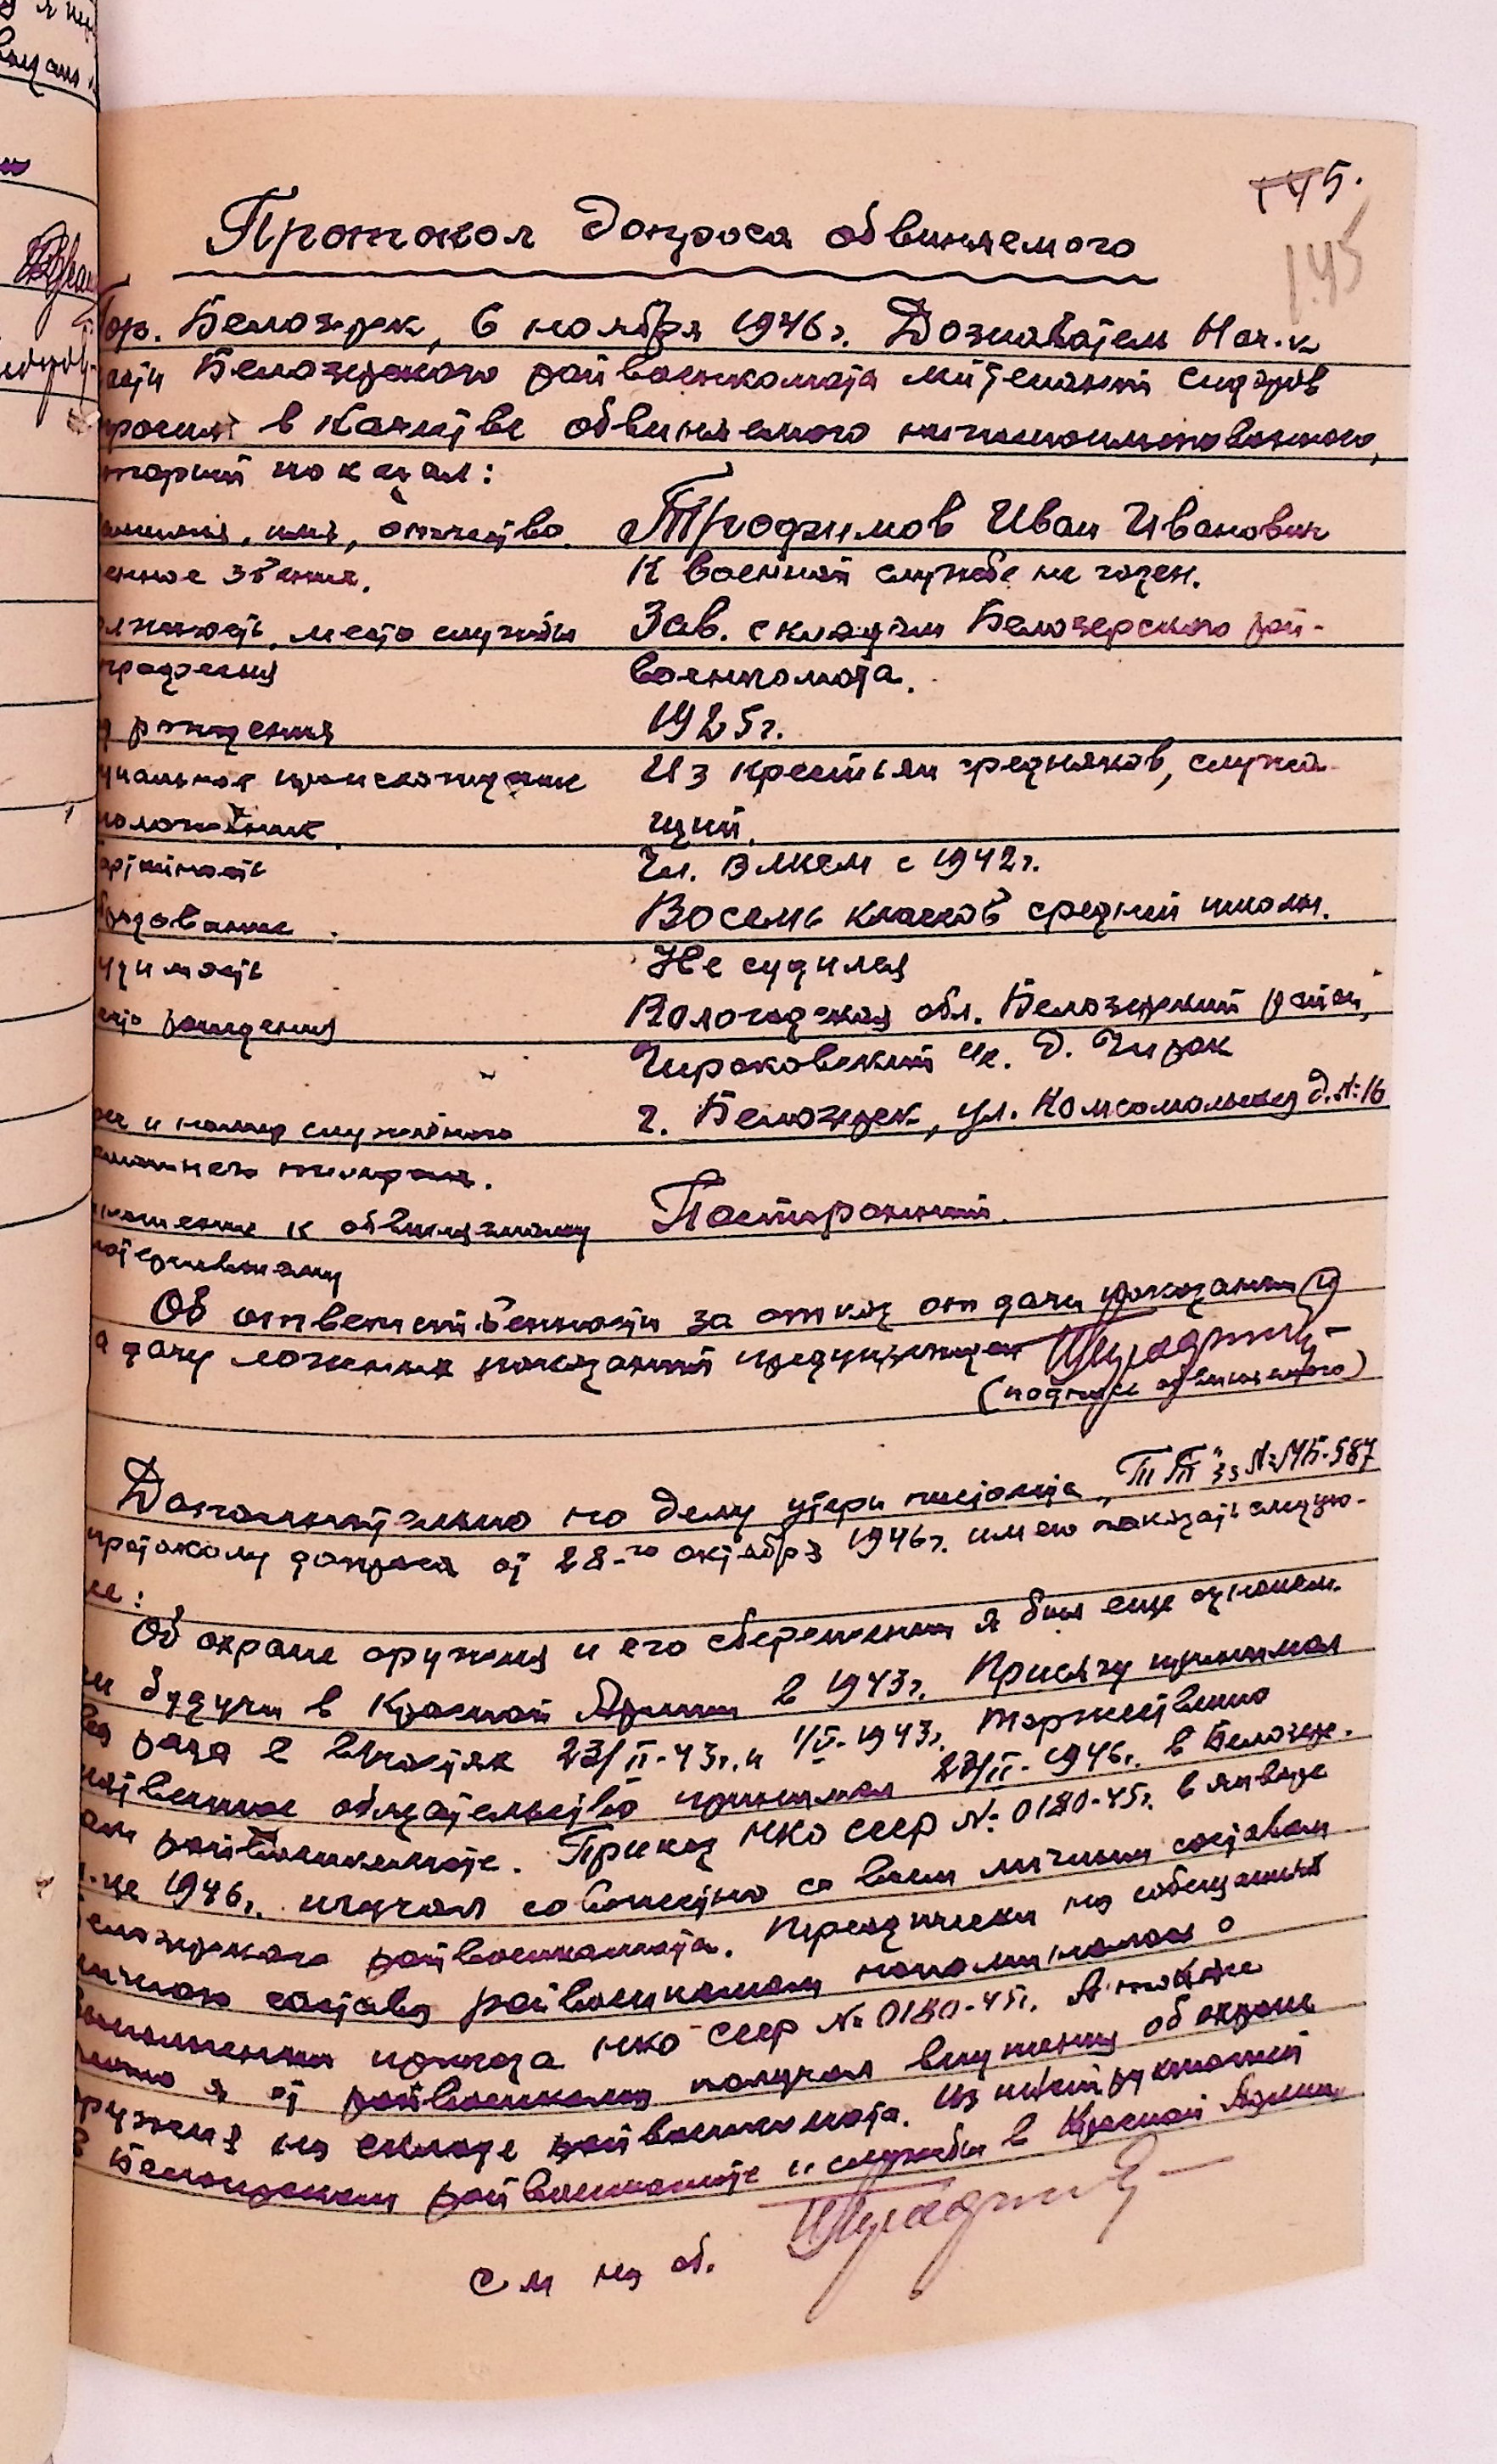 145.
145
Протокол допроса обвиняемого
Гор. Белозерск, 6 ноября 1946г. Дознаватель Нач. к
Белозерского райвоенкомата лейтенант
в качестве обвиняемого нижепоименованного,
торый показал:
амилия, имя, отчество. Трофимов Иван Иванович
енное звание. К военной службе не годен.
олжность, место службы Зав. складом Белозерского рай-
военкомата.
д рождения 1925г.
циальное происхождение Из крестьян середняков, служа-
положение. щий.
артийность Чл. ВЛКСМ с 1942г.
бразование. Восемь классов средней школы.
удимость Не судился
сто рождения Вологодская обл. Белозерский район,
с. д. Чирок
рес и номер служебного г. Белозерск, ул. Комсомольская д. № 16
омашнего телефона.
ношение к обвиняемому Посторонний.
потерпевшему
Об ответственности за отказ от дачи показаний и
а дачу ложных показаний предупрежден
(подпись обвиняемого)
Дополнительно по делу утери пистолета „ТТ" за № МБ-587
протоколу допроса от 28-го октября 1946г. имею показать следую-
ее:
Об охране оружия и его сбережении я был еще ознаком-
ен будучи в Красной Армии в 1943г. Присягу принимал
два раза в частях 23/II-43г. и 1/V-1943г. Торжественно
обязательство принимал 23/II-1946г. в Белозер-
ом райвоенкомате. Приказ НКО СССР № 0180-45г. в январе
м-це 1946г. изучал совместно со всем личным составом
елозерского райвоенкомата. Периодически на совещаниях
ичного состава райвоенкомом напоминалось о
выполнении приказа НКО СССР № 0180-45г. А также
лично я от райвоенкома получал внушения об охране
оружия на складе райвоенкомата. Из инструктажей
в Белозерском райвоенкомате и службы в Красной Армии
См на об.